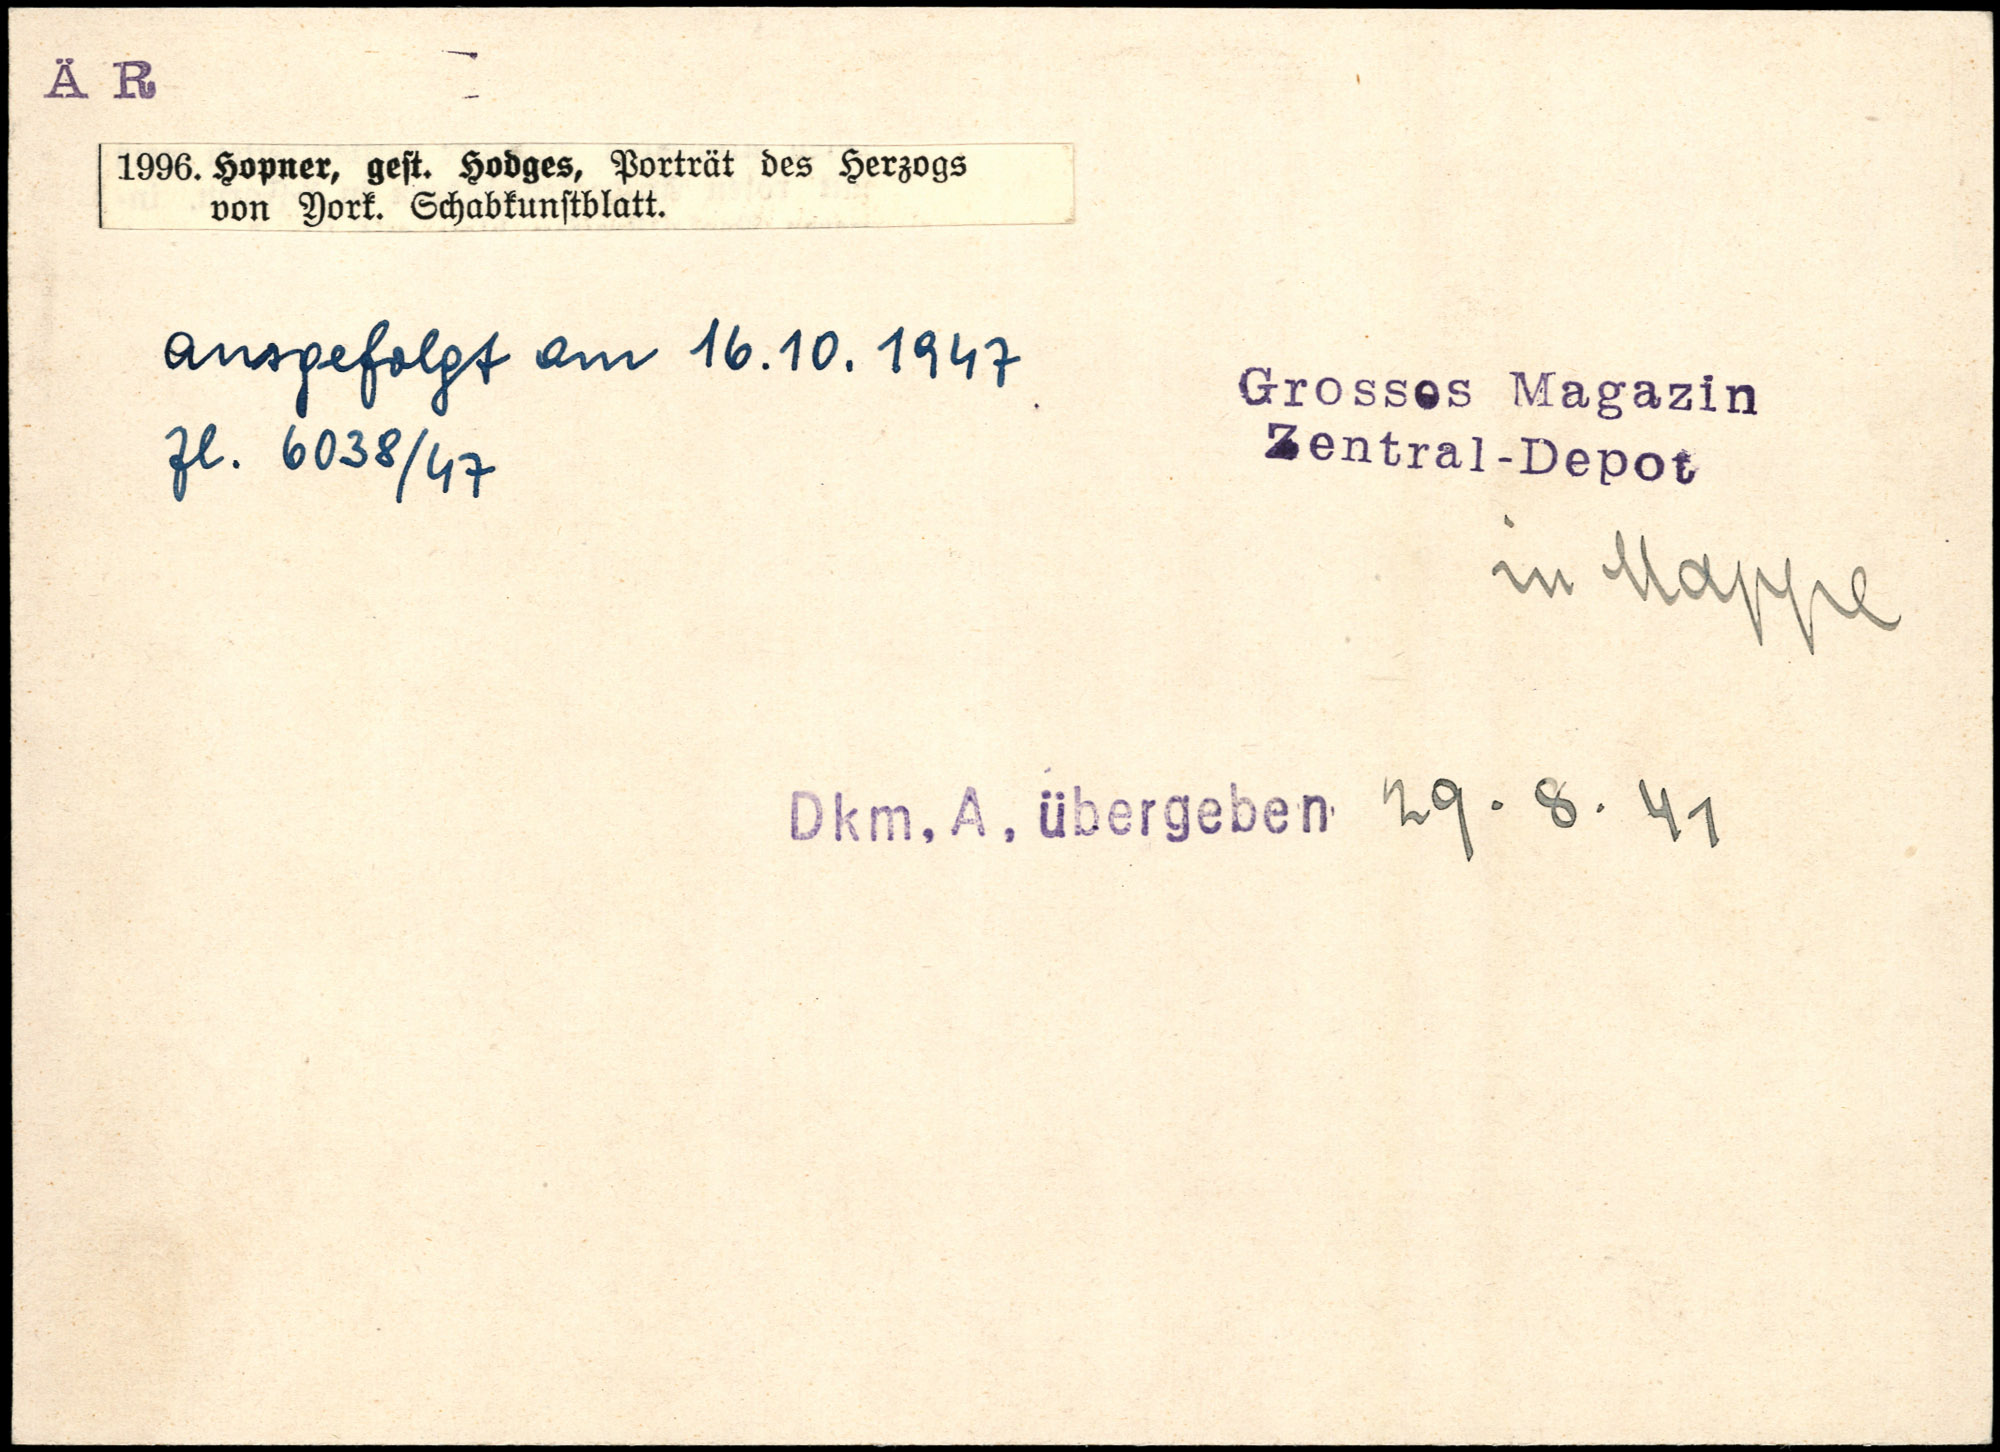 Ä R
1996. Hopner, gest. Hodges, Porträt des Herzogs
von York. Schabkunstblatt.
ausgefolgt am 16.10.1947
Zl. 6038/47
Grosses Magazin
Zentral-Depot
in Mappe
Dkm, A, übergeben 29.8.41